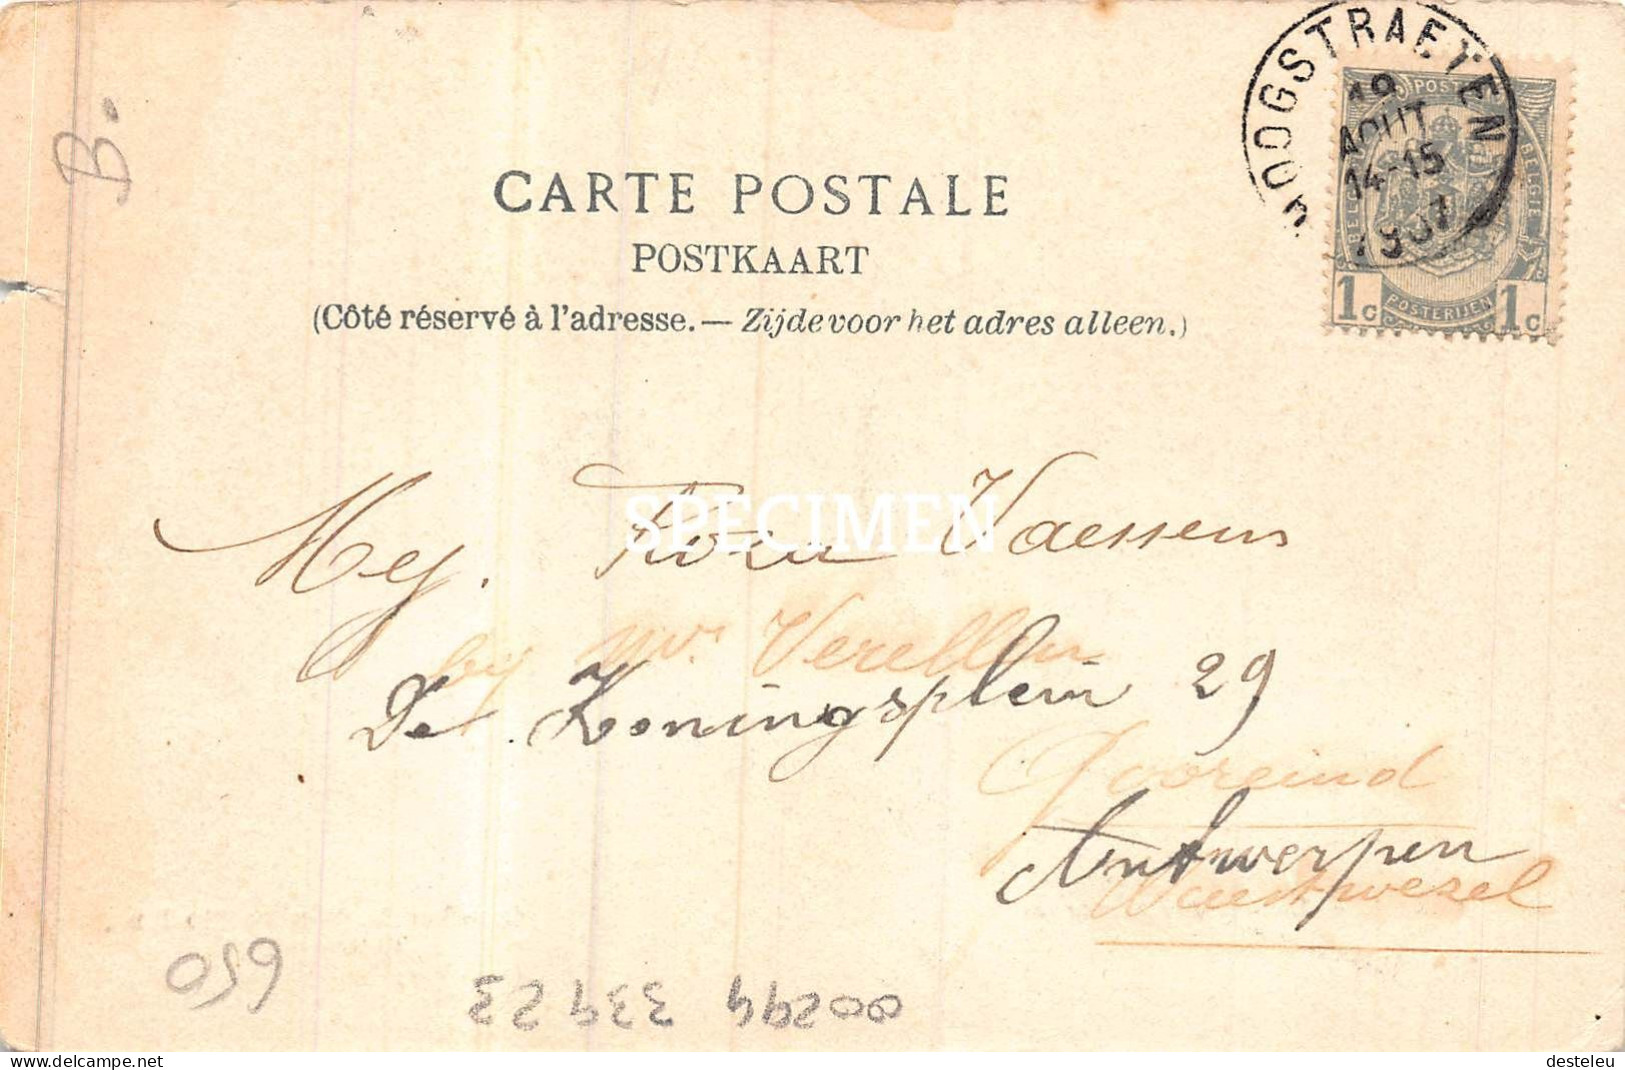 B.
HOOGSTRAETEN
19
AOUT
14-15
1907
POSTERIJEN
1c 1c
CARTE POSTALE
POSTKAART
(Côté réservé à l'adresse.— Zijde voor het adres alleen.)
SPECIMEN
Mej. Roza Vaessens
by Mr. Verellen
De Koningsplein 29
Gooreind
Antwerpen
Wuestwezel
650
00294 339 23
delcampe.net
desteleu